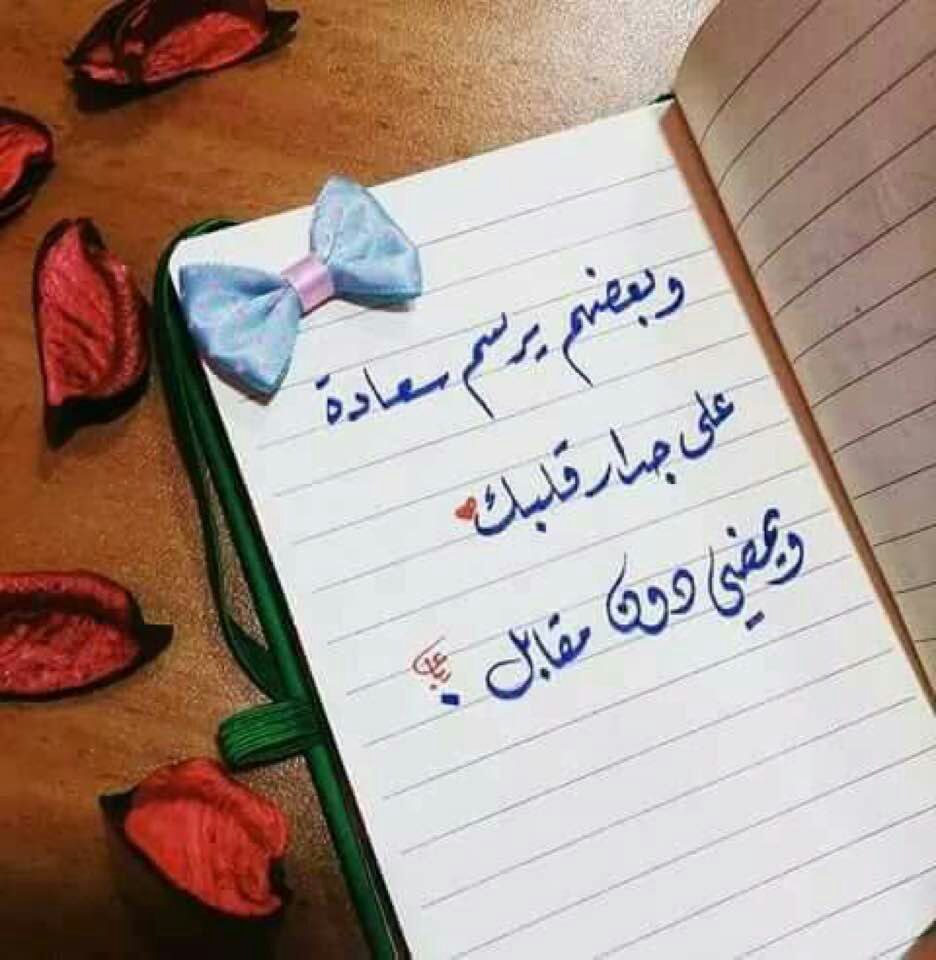 وبعضهم يرسم سعادة
على جدار قلبك
ويمضي دون مقابل .